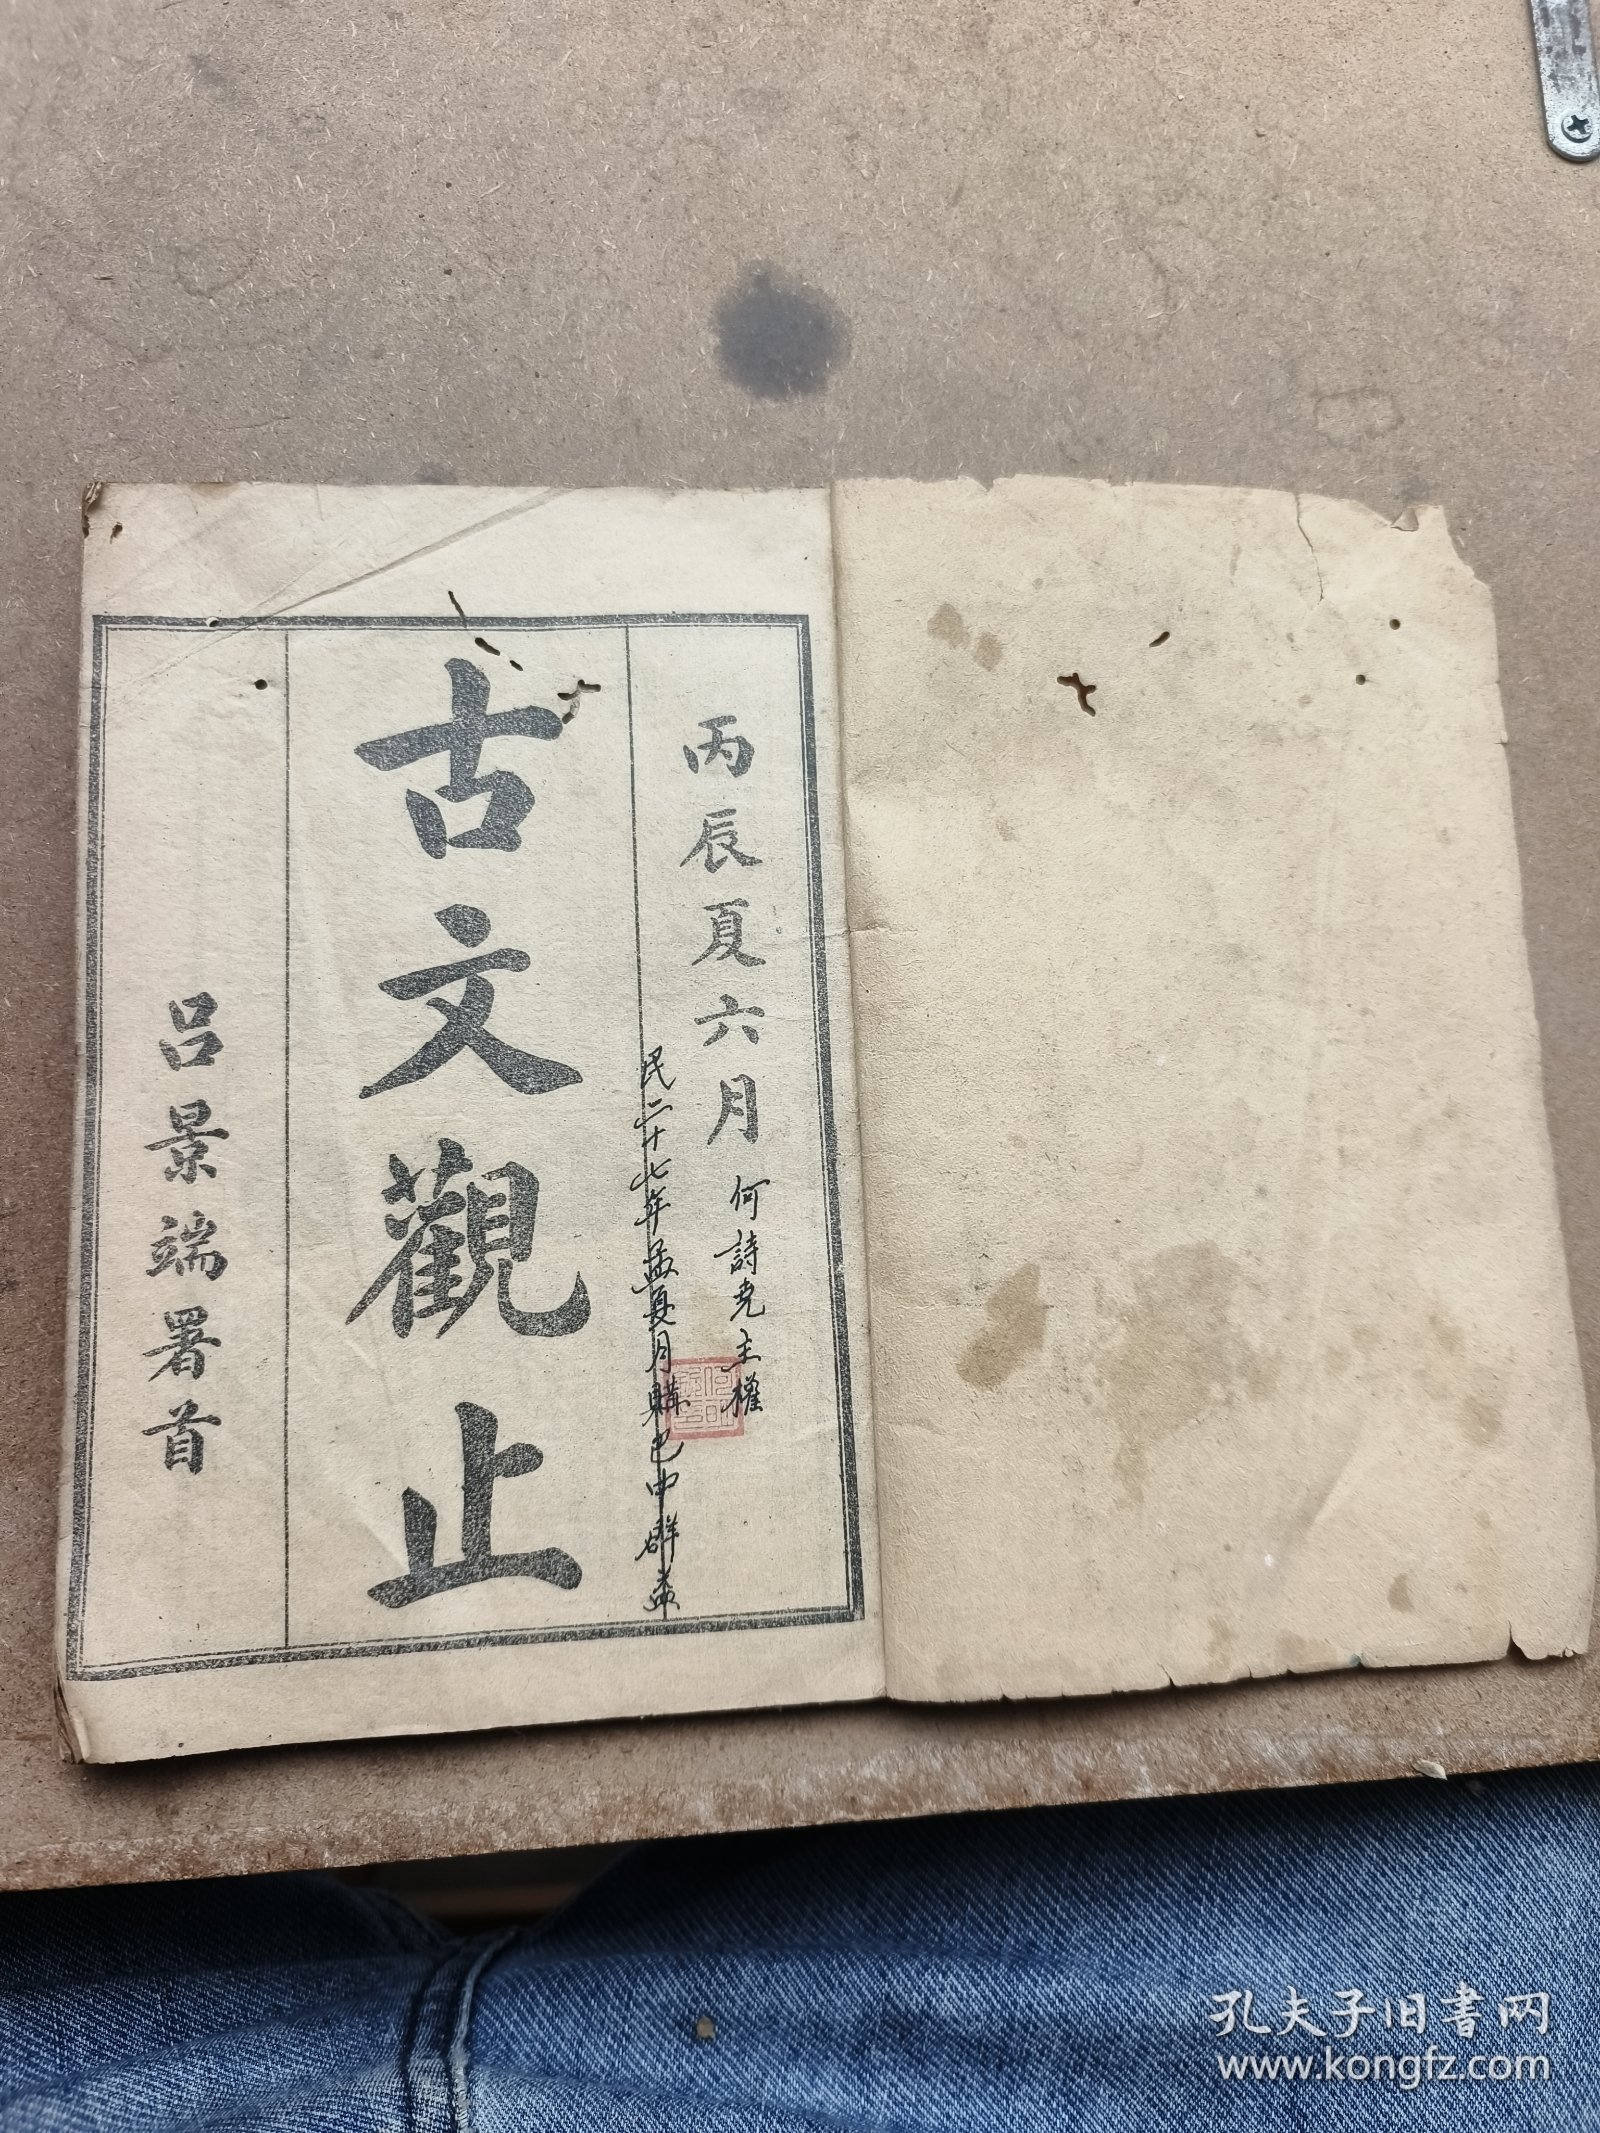 丙辰夏六月
何詩堯主權
民二十七年孟夏月購巴中群益
古文觀止
呂景端署首
孔夫子旧书网
www.kongfz.com